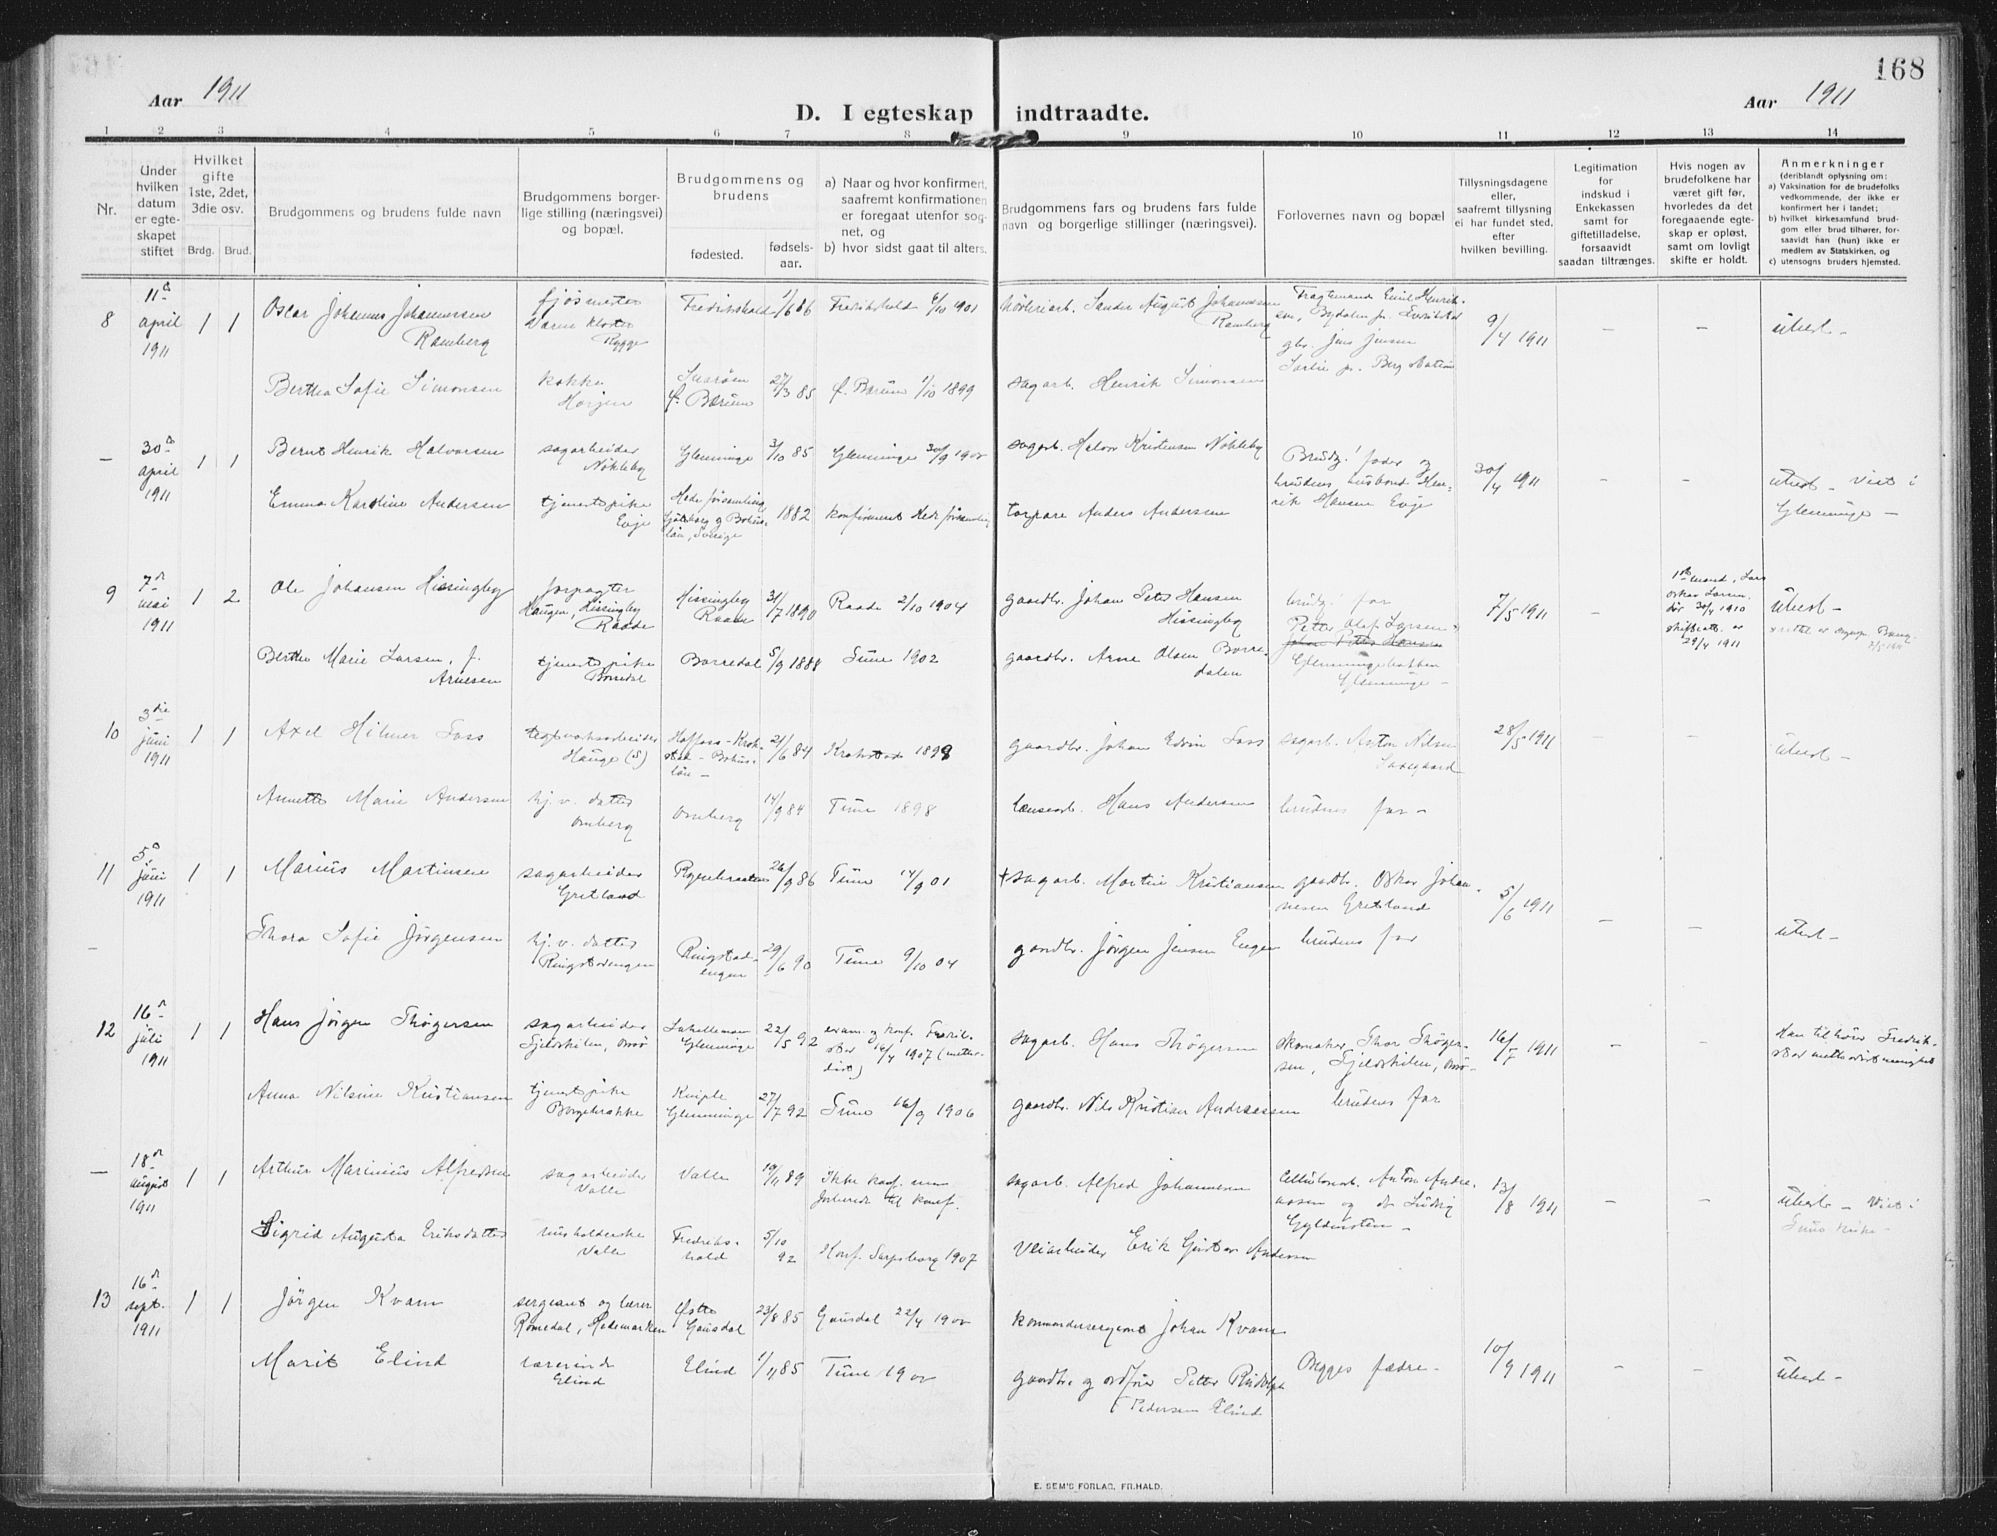 168
Aar 1911
D. I egteskap indtraadte.
Aar 1911
1 2 3 4 5 6 7 8 9 10 11 12 13 14
Nr.
Under hvilken datum er egteskapet stiftet
Hvilket gifte 1ste, 2det, 3die osv.
Brdg. Brud.
Brudgommens og brudens fulde navn
Brudgommens borgerlige stilling (næringsvei) og bopæl.
Brudgommens og brudens
fødested.
fødselsaar.
a) Naar og hvor konfirmert, saafremt konfirmationen er foregaat utenfor sognet, og
b) hvor sidst gaat til alters.
Brudgommens fars og brudens fars fulde navn og borgerlige stillinger (næringsvei).
Forlovernes navn og bopæl
Tillysningsdagene eller, saafremt tillysning ei har fundet sted, efter hvilken bevilling.
Legitimation for indskud i Enkekassen samt for giftetilladelse, forsaavidt saadan tiltrænges.
Hvis nogen av brudefolkene har været gift før, hvorledes da det foregaaende egteskap er opløst, samt om lovligt skifte er holdt.
Anmerkninger
(deriblandt oplysning om:
a) Vaksination for de brudefolks vedkommende, der ikke er konfirmert her i landet;
b) hvilket kirkesamfund brudgom eller brud tilhører, forsaavidt han (hun) ikke er medlem av Statskirken, og
c) utensogns bruders hjemsted.
8 11 april 1911 1 1 Oscar Johannes Johannessen Ramberg fjøsmester Værne Kloster Rygge Fredrikshald 1/6 86 Fredrikshald 6/10 1901 Sander August Johannesen Ramberg 9/4 1911 – – ubest –
Emil Henriksen,
gbr. Jens Jensen
Berg station
Bertha Sofie Simonsen kokke Horgen Ø. Bærum 27/3 85 Ø. Bærum 1/10 1899 sagarb. Henrik Simonsen
– 30 april 1911 1 1 Bernt Henrik Halvorsen sagarbeider Nökleby Glemminge 3/10 85 Glemminge 30/9 1900 sagarb. Halvor Kristensen Nökleby Brudg.' fader og brudens husbond Henrik Hansen Evje 30/4 1911 – – ubest – Viet i Glemminge –
Emma Karoline Andersen tjenestepike Evje Hede forsamling Göteborg og Bohuslän, Sverige 1882 konfirmert Hede forsamling torpare Anders Andersen
9 7 mai 1911 1 2 Ole Johansen Hissingby forpagter Haugen, Hissingby Raade Hissingby Raade 31/7 1890 Raade 2/10 1904 gaardbr. Johan Peter Hansen Hissingby brudg.' far Petter Olaf Larsen Johan Peter Hansen Glemmingebakken Glemminge – 7/5 1911 – 1ste mand, Lars Oskar Larsen, dör 30/4 1910 skifteatt. er 29/4 1911 ubest –
Berthe Marie Larsen, f. Arnesen tjenestepike Borredal Borredal 5/9 1888 Tune 1902 gaardbr. Arne Olsen Borredalen
10 3die juni 1911 1 1 Axel Hilmer Foss teglverksarbeider Hauge (S) Krokstad – Bohuslän – 21/6 84 Krokstad 1898 gaardbr. Johan Edvin Foss sagarb. Anton Nilsen 28/5 1911 – – ubest –
Annette Marie Andersen hj. v. datter Omberg Omberg 14/9 84 Tune 1898 lænsearb. Hans Andersen brudens far –
11 5 juni 1911 1 1 Marius Martinsen sagarbeider Gretland 26/9 86 Tune 14/9 01 + sagarb. Martin Kristiansen gaardbr. Oskar Johannesen Gretland 5/6 1911 – – ubest –
– Thora Sofie Jörgensen hj. v. datter Ringstadengen Ringstadengen 29/6 90 Tune 9/10 04 gaardbr. Jörgen Jensen Engen brudens far
12 16 juli 1911 1 1 Hans Jörgen Thögersen sagarbeider Fjeldskilen, Glemminge 22/5 92 exam. og konf. Fredrikstad 16/4 1907 (metodist) sagarb. Hans Thögersen skomaker Thor Thögersen, Fjeldskilen, 16/7 1911 – – Han tilhörer Fredrikstad methodistmenighet
Anna Nilsine Kristiansen tjenestepike Borgebrakke Kniple Glemminge 27/7 92 Tune 16/9 1906 gaardbr. Nils Kristian Andreassen brudens far
– 18 august 1911 1 1 Arthur Marinius Alfredsen sagarbeider Valle Valle 19/11 89 Ikke konf. men forberedt til konf. sagarb. Alfred Johannesen cellulosearb. Anton Andreassen og do Ludvig Gyldensten – 13/8 1911 – – ubest – Viet i Tune kirke –
Sigrid Augusta Eriksdatter husholderske Valle Fredrikshald 5/10 92 Konf. Sarpsborg 1907 veiarbeider Erik Gustav Andersen
13 16 sept. 1911 1 1 Jörgen Kvam sergeant og lærer Romedal, Hedemarken Østre Gausdal 23/8 85 Gausdal 22/4 1900 kommandersergeant Johan Kvam Begges fædre – 10/9 1911 – – ubest –
Marit Elind lærerinde Elind Elind 1/11 85 Tune 1900 gaardbr. og ordförer Petter Rudolph Pedersen Elind
E. SEM'S FORLAG, FR.HALD.